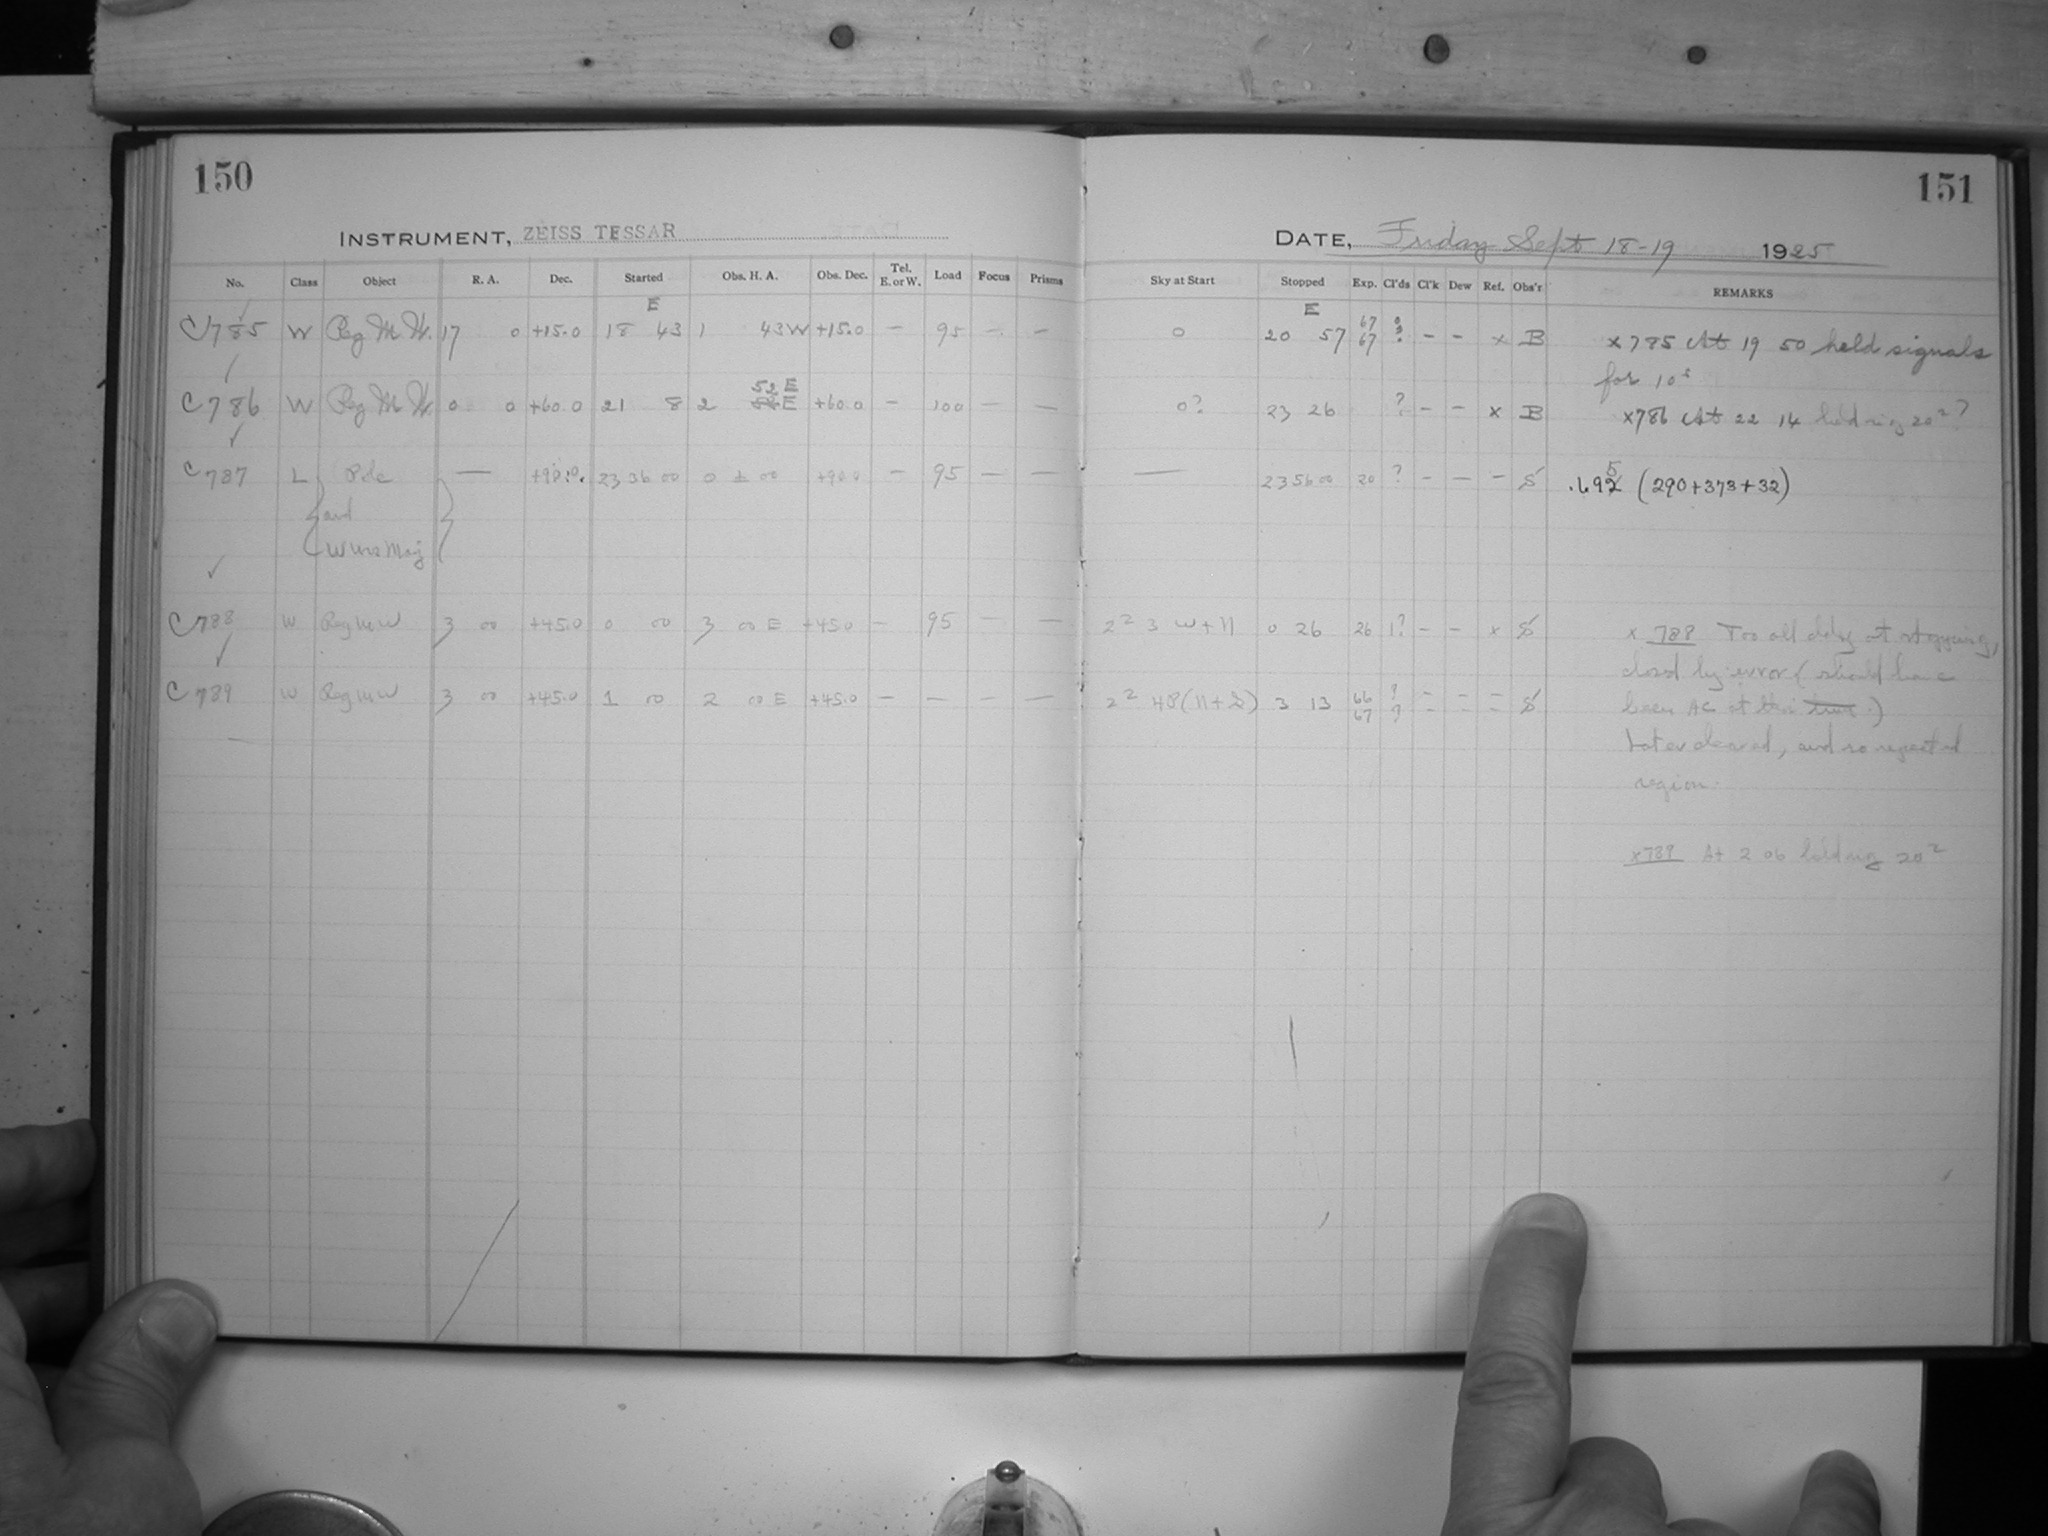 150
INSTRUMENT, ZEISS TESSAR
No. Class Object R. A. Dec. Started Obs. H. A. Obs. Dec. Tel. E. or W. Load Focus Prisms
E
C785 W Reg M W. 17 0 +15.0 18 43 1 43W +15.0 — 95 — —
52 E
C786 W Reg M W. 0 0 +60.0 21 8 2 E +60.0 — 100 — —
C787 L Pole — +90.0. 23 36 00 0 ± 00 +90.0 — 95 — —
and
W Urs Maj
C788 W Reg M W 3 00 +45.0 0 00 3 00 E +45.0 — 95 — —
C789 W Reg M W 3 00 +45.0 1 00 2 00 E +45.0 — — — —
151
DATE, Friday Sept 18-19 1925
Sky at Start Stopped Exp. Cl'ds Cl'k Dew Ref. Obs'r REMARKS
E
0 20 57 67 67 ? – – x B x785 At 19 50 held signals
for 10s
0? 23 26 ? – – x B x786 At 22 14 holding 20²?
— 23 56 00 20 ? – – – S .695 (290+373+32)
2² 3 W+11 0 26 26 1? – – x S x 788 at stopping,
closed by error (should have
been AC at this time.)
Later cleared, and so repeated
region.
2² 48(11+2) 3 13 66 67 ? ? – – – – = S
x789 At 2 06 holding 20²